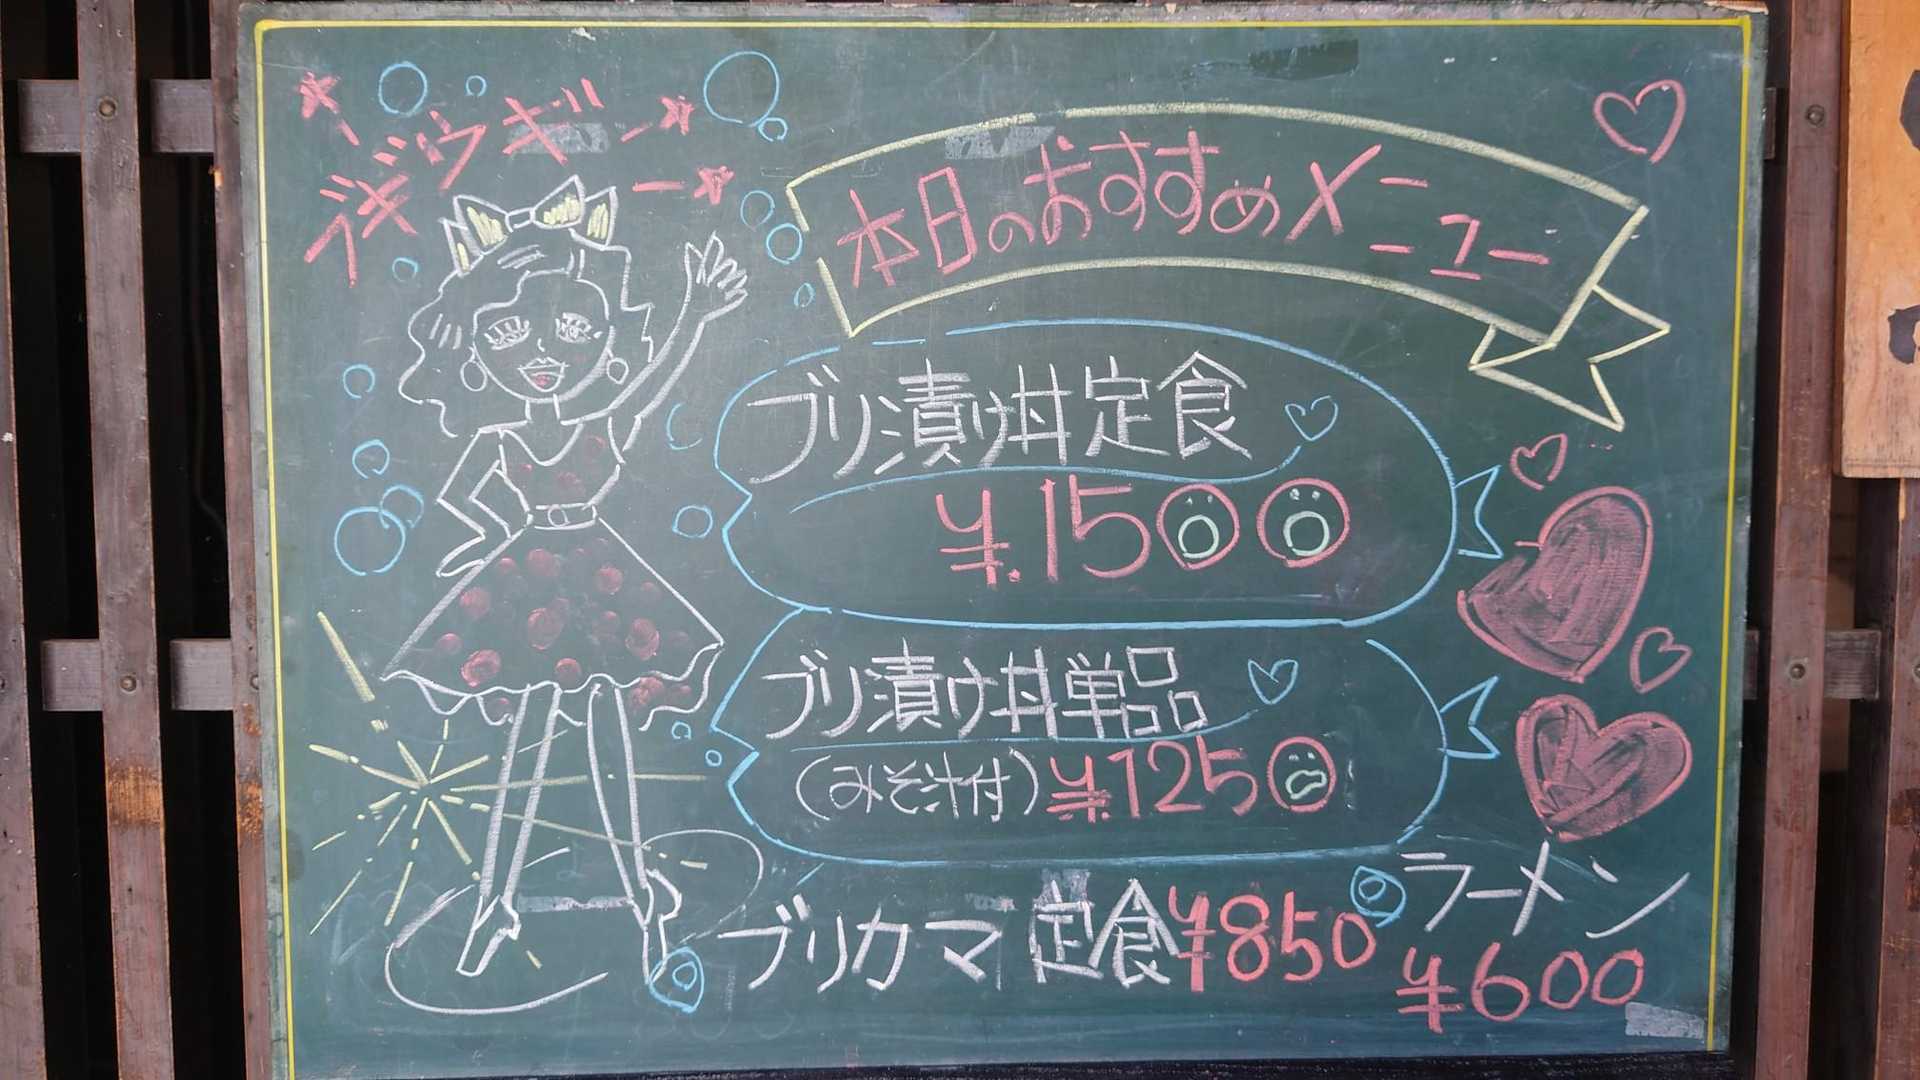 ブギウギ
本日のおすすめメニュー
ブリ漬け丼定食
¥.1500
ブリ漬け丼単品
(みそ汁付)¥.1250
ブリカマ定食¥850
ラーメン
¥600